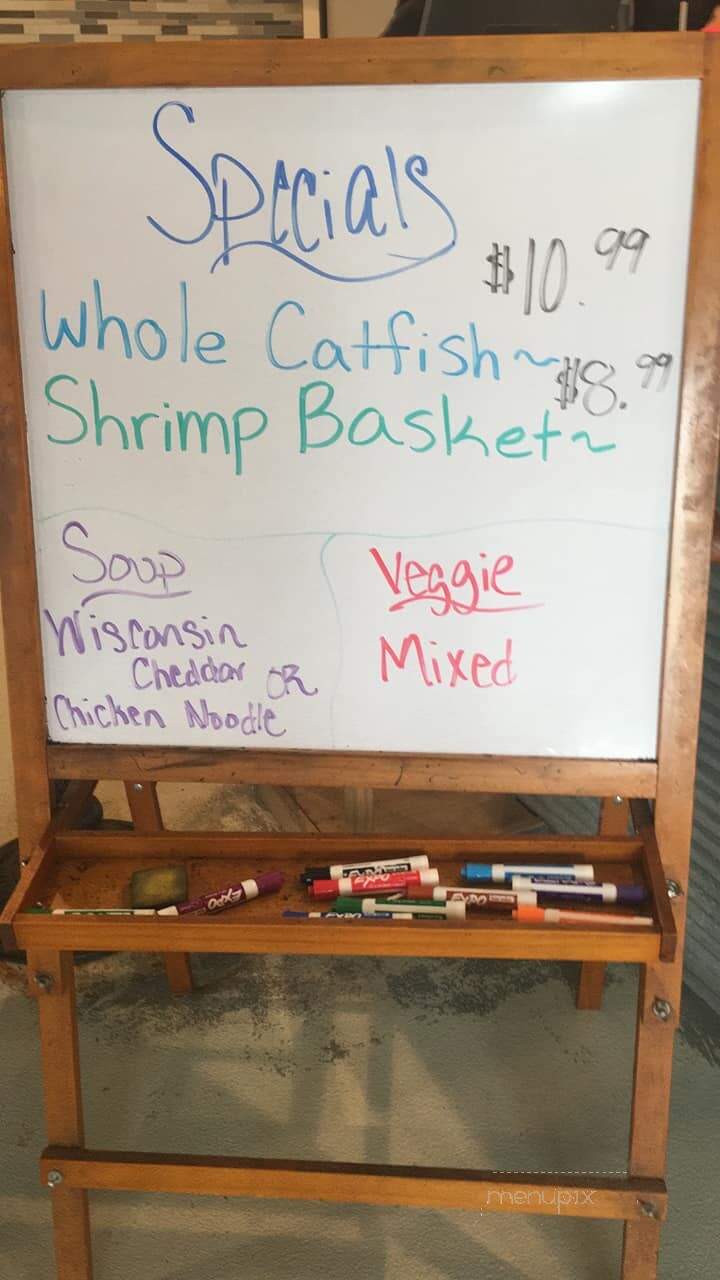 Specials
$10.99
Whole Catfish ~
$8.99
Shrimp Basket ~
Soup
Wisconsin
Cheddar OR
Chicken Noodle
Veggie
Mixed
EXPO
EXPO
EXPO
menupix